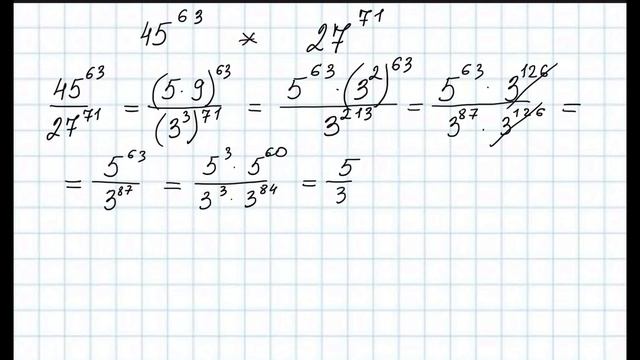 45^63 * 27^71
45^63/27^71 = (5·9)^63/(3^3)^71 = 5^63·(3^2)^63/3^213 = 5^63·3^126/3^87·3^126 =
= 5^63/3^87 = 5^3·5^60/3^3·3^84 = 5/3